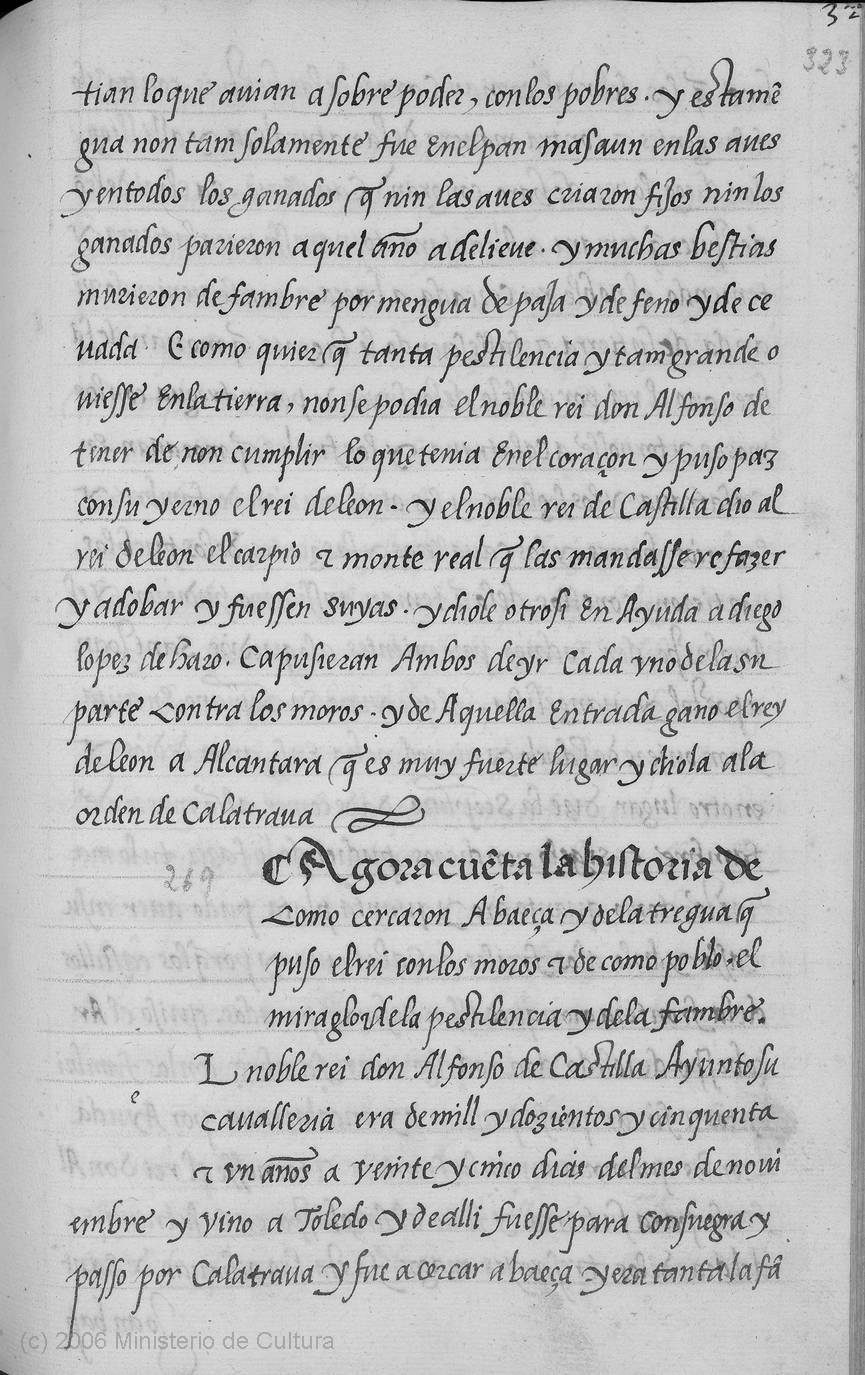 323
tian lo que auian a sobre poder, con los pobres. y esta mẽ
gua non tam solamente fue enel pan mas aun en las aues
y en todos los ganados q̃ nin las aues criaron fijos nin los
ganados parieron aquel año adelieue. y muchas bestias
murieron de fambre por mengua de paja y de feno y de ce
uada. E como quier q̃ tanta pestilencia y tam grande o
uiesse enla tierra, non se podia el noble rei don Alfonso de
tener de non cumplir lo que tenia enel coraçon y puso paz
con su yerno el rei de leon. y el noble rei de Castilla dio al
rei de leon el carpio τ monte real q̃ las mandasse refazer
y adobar y fuessen suyas. y diole otrosi en Ayuda a diego
lopez de haro. Ca pusieran Ambos de yr Cada vno de la su
parte contra los moros. y de Aquella entrada gano el rey
de leon a Alcantara q̃ es muy fuerte lugar y diola a la
orden de Calatraua
269
Agora cuẽta la historia de
como cercaron A baeça y de la tregua q̃
puso el rei con los moros τ de como poblo. el
miraglo τ de la pestilencia y de la fambre.
L noble rei don Alfonso de Castilla Ayunto su
e
caualleria era de mill y dozientos y cinquenta
τ vn años a veinte y cinco dias del mes de noui
embre y vino a Toledo y de alli fuesse para consuegra y
passo por Calatraua y fue a cercar a baeça y era tanta la fã
(c) 2006 Ministerio de Cultura